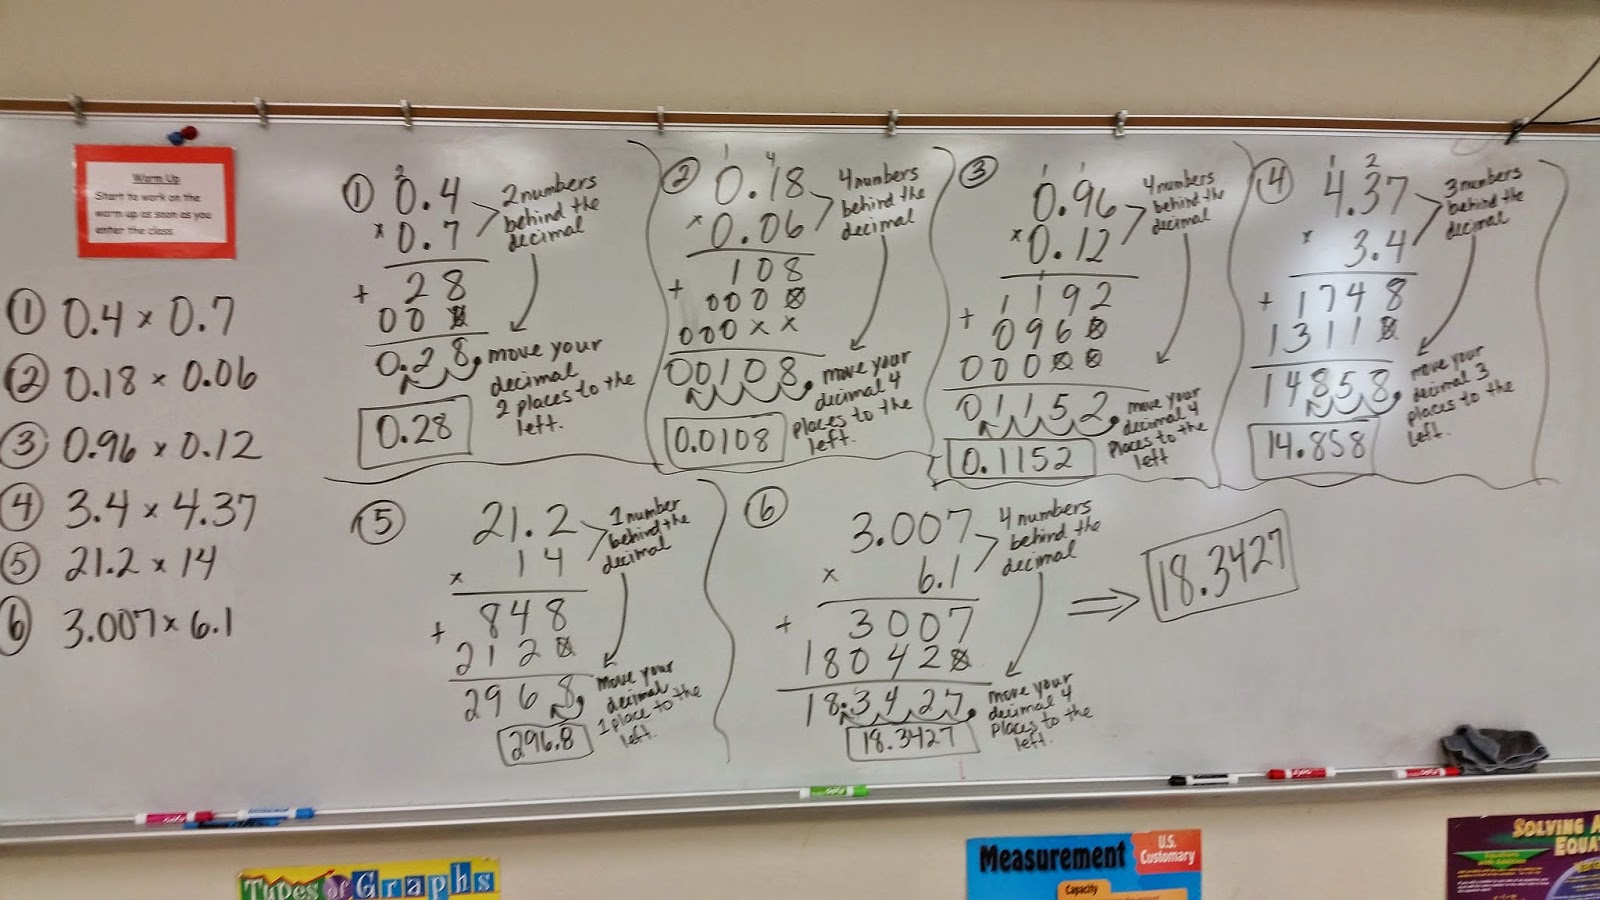 Warm Up
Start to work on the
warm up as soon as you
enter the class.
① 0.4 × 0.7
② 0.18 × 0.06
③ 0.96 × 0.12
④ 3.4 × 4.37
⑤ 21.2 × 14
⑥ 3.007 × 6.1
①
2
0.4
× 0.7
2 numbers
behind the
decimal
+ 28
00
0.28
move your
decimal
2 places to the
left.
0.28
②
1 4
0.18
× 0.06
4 numbers
behind the
decimal
108
+ 000
000××
00108
move your
decimal 4
places to the
left.
0.0108
③
1 1
0.96
× 0.12
4 numbers
behind the
decimal
1
1192
+ 0960
00000
01152
move your
decimal 4
places to the
left
0.1152
④
1 2
4.37
× 3.4
3 numbers
behind the
decimal
+ 1748
1311
14858
move your
decimal 3
places to the
left.
14.858
⑤
21.2
× 14
1 number
behind the
decimal
848
+ 2120
2968
move your
decimal
1 place to the
left.
296.8
⑥
3.007
× 6.1
4 numbers
behind the
decimal
+ 3007
18042
18.3427
move your
decimal 4
places to the
left.
18.3427
⇒ 18.3427
EXPO
Types of Graphs
Measurement
U.S.
Customary
Capacity
SOLVING
EQUA